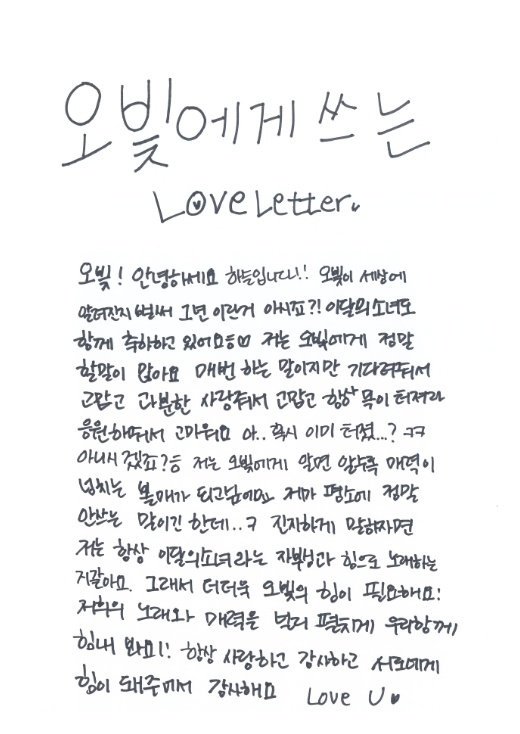 오빛에게 쓰는
Love Letter.
오빛! 안녕하세요 하슬입니다!! 오빛이 세상에
알려진지 벌써 2년 이란거 아시죠?! 이달의소녀도
함께 축하하고 있어요 저는 오빛에게 정말
할말이 많아요 매번 하는 말이지만 기다려줘서
고맙고 과분한 사랑줘서 고맙고 항상 목이 터져라
응원해줘서 고마워요 아.. 혹시 이미 터졌...? ㅋㅋ
아니시겠죠? 저는 오빛에게 알면 알수록 매력이
넘치는 볼매가 되고싶어요 제가 평소에 정말
안쓰는 말이긴 한데..ㅋ 진지하게 말하자면
저는 항상 이달의소녀라는 자부심과 힘으로 노래하는
거같아요. 그래서 더더욱 오빛의 힘이 필요해요!
저희의 노래와 매력을 널리 펼치게 우리함께
힘내 봐요!! 항상 사랑하고 감사하고 서로에게
힘이 돼주어서 감사해요 Love U